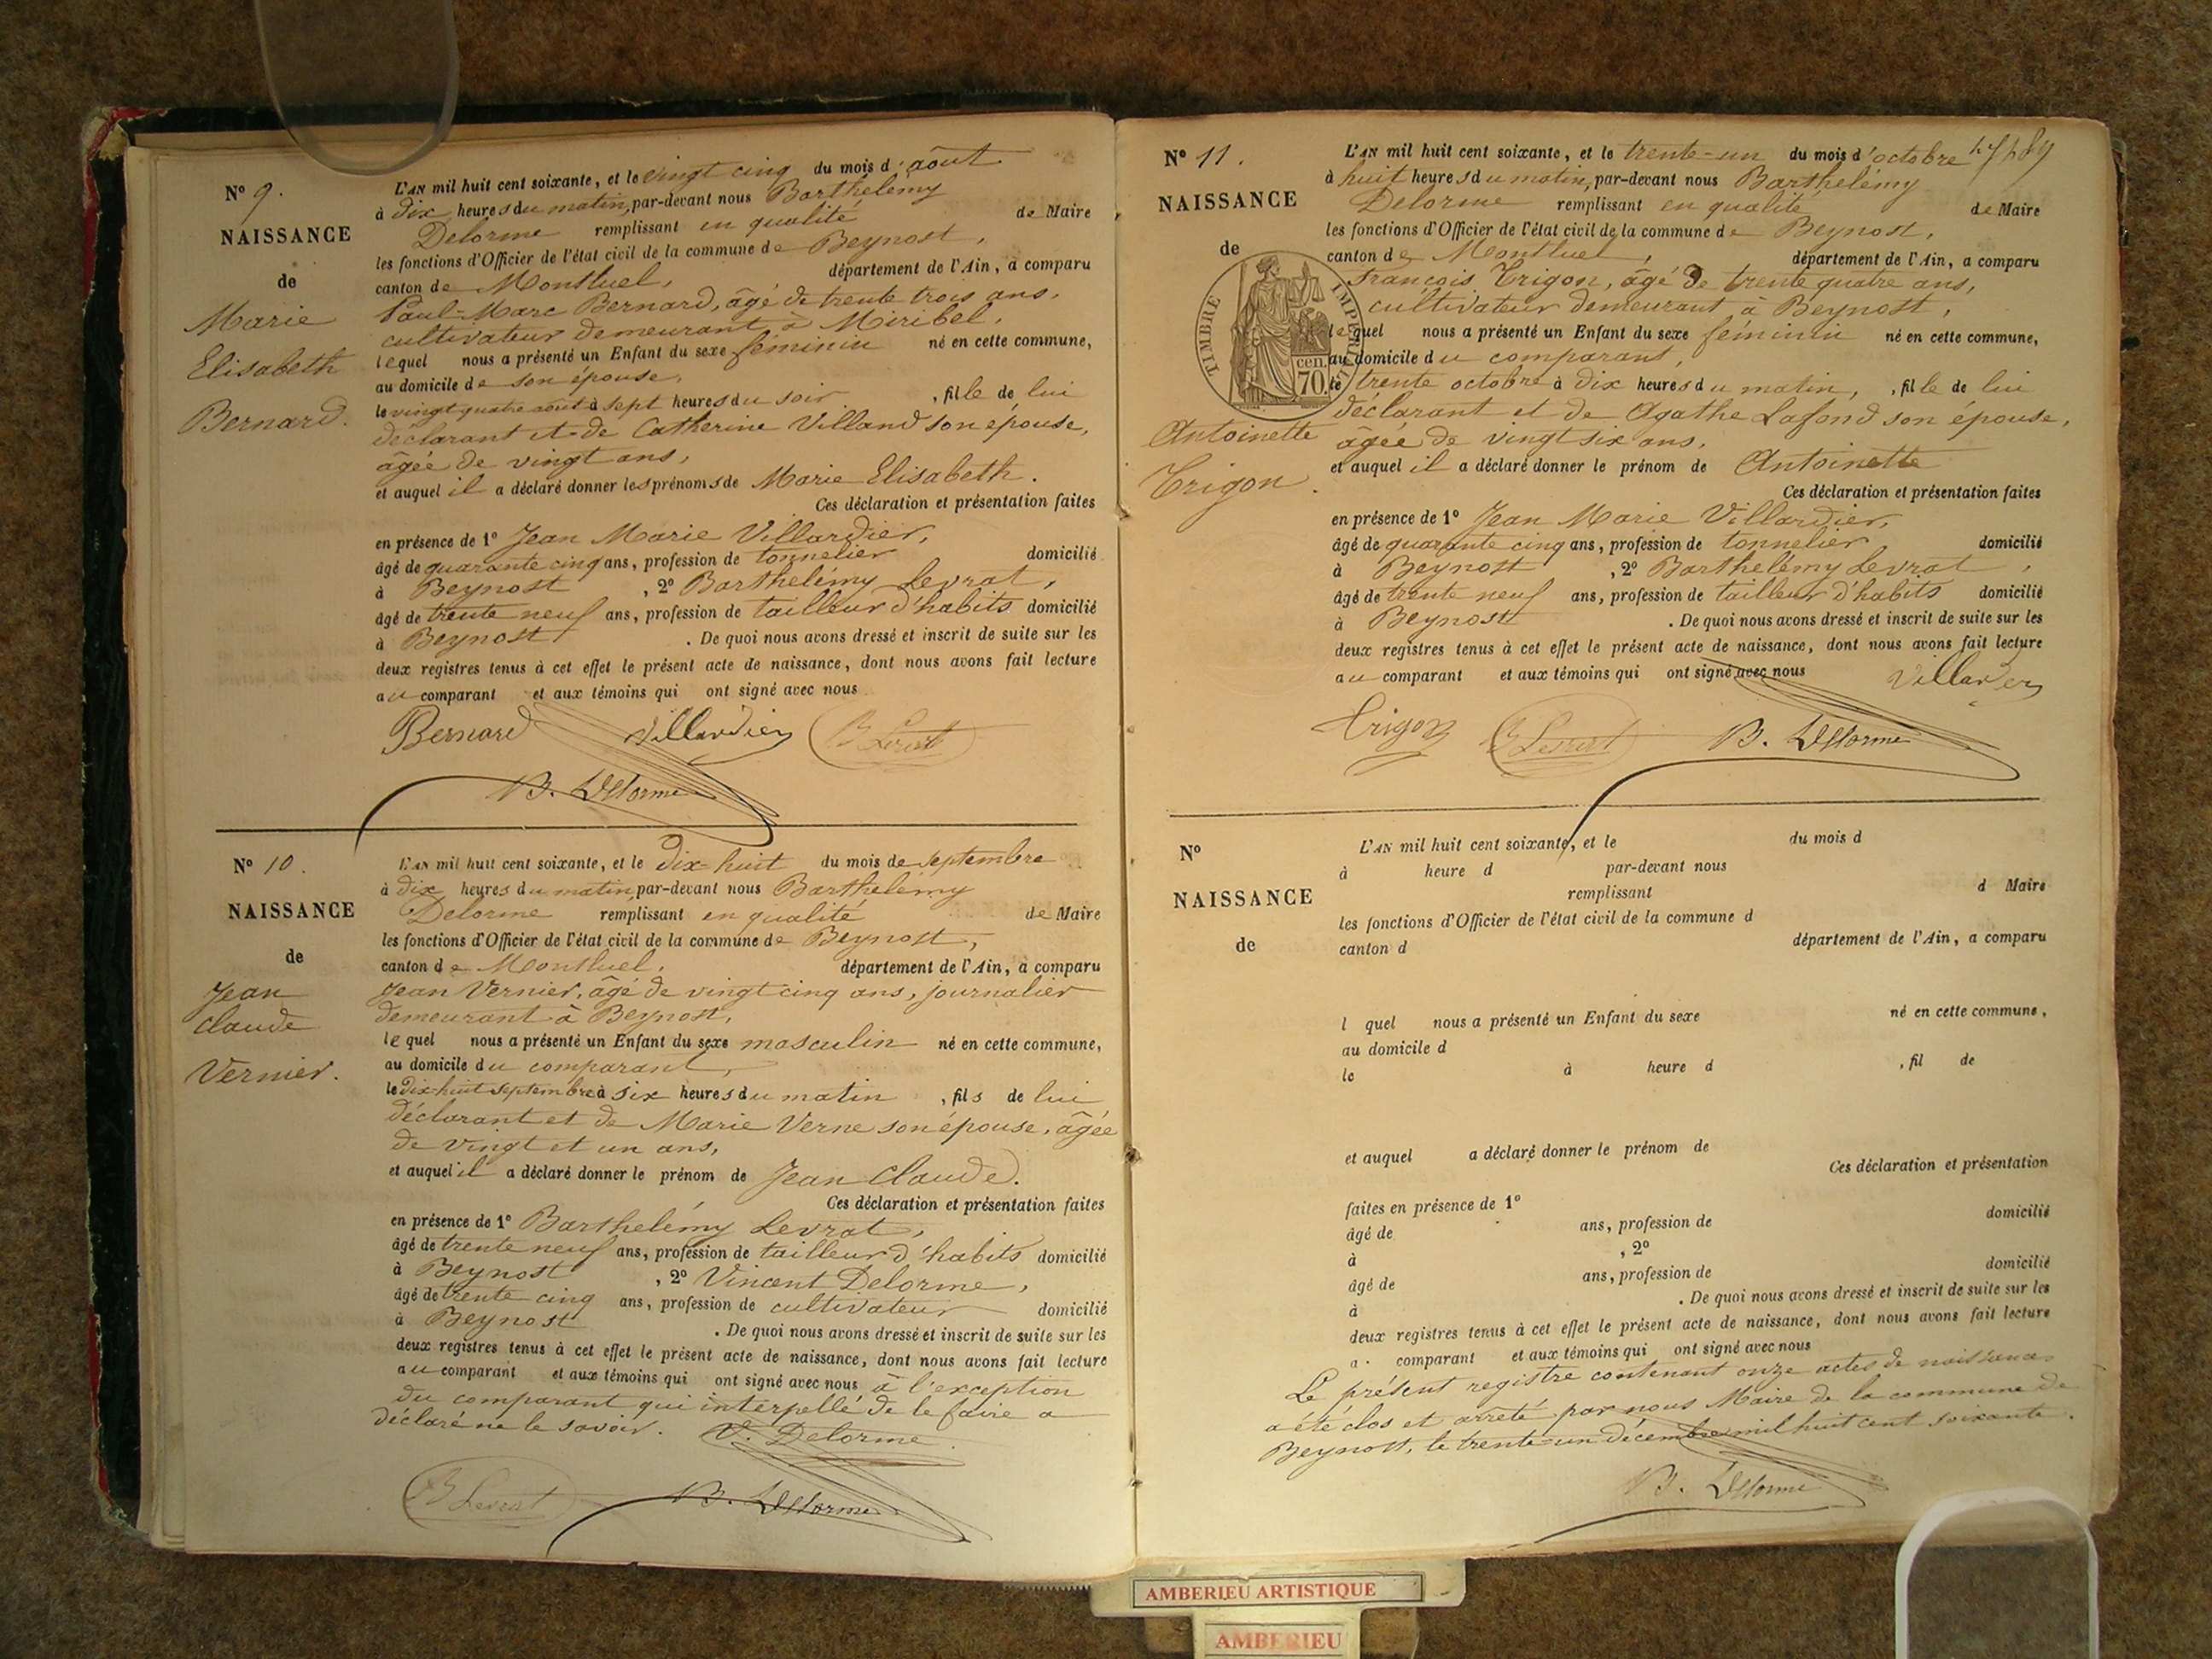 N° 9.
NAISSANCE
de
Marie
Elisabeth
Bernard.
L'AN mil huit cent soixante, et le vingt cinq du mois d'août
à dix heures du matin, par-devant nous Barthélemy
Delorme remplissant en qualité de Maire
les fonctions d'Officier de l'état civil de la commune de Beynost,
canton de Montluel, département de l'Ain, a comparu
Paul-Marc Bernard, âgé de trente trois ans,
cultivateur demeurant à Miribel,
lequel nous a présenté un Enfant du sexe féminin né en cette commune,
au domicile de son épouse,
le vingt quatre août à sept heures du soir, fille de lui
déclarant et de Catherine Villand son épouse,
âgée de vingt ans,
et auquel il a déclaré donner les prénoms de Marie Elisabeth.
Ces déclaration et présentation faites
en présence de 1° Jean Marie Villardier,
âgé de quarante cinq ans, profession de tonnelier domicilié
à Beynost, 2° Barthélemy Levrat,
âgé de trente neuf ans, profession de tailleur d'habits domicilié
à Beynost. De quoi nous avons dressé et inscrit de suite sur les
deux registres tenus à cet effet le présent acte de naissance, dont nous avons fait lecture
au comparant et aux témoins qui ont signé avec nous
Bernard Villardier B Levrat
B. Delorme
N° 10.
NAISSANCE
de
Jean
Claude
Vernier.
L'AN mil huit cent soixante, et le dix-huit du mois de septembre
à dix heures du matin, par-devant nous Barthélemy
Delorme remplissant en qualité de Maire
les fonctions d'Officier de l'état civil de la commune de Beynost,
canton de Montluel, département de l'Ain, a comparu
Jean Vernier, âgé de vingt cinq ans, journalier
demeurant à Beynost,
lequel nous a présenté un Enfant du sexe masculin né en cette commune,
au domicile du comparant,
le dix-huit septembre à six heures du matin, fils de lui
déclarant et de Marie Verne son épouse, âgée
de vingt et un ans,
et auquel il a déclaré donner le prénom de Jean Claude.
Ces déclaration et présentation faites
en présence de 1° Barthelémy Levrat,
âgé de trente neuf ans, profession de tailleur d'habits domicilié
à Beynost, 2° Vincent Delorme,
âgé de trente cinq ans, profession de cultivateur domicilié
à Beynost. De quoi nous avons dressé et inscrit de suite sur les
deux registres tenus à cet effet le présent acte de naissance, dont nous avons fait lecture
au comparant et aux témoins qui ont signé avec nous à l'exception
du comparant qui interpellé de le faire a
déclaré ne le savoir. V. Delorme
B Levrat B. Delorme
N° 11.
NAISSANCE
de
TIMBRE IMPERIAL
70 cen.
Antoinette
Trigon.
L'AN mil huit cent soixante, et le trente-un du mois d'octobre
à huit heures du matin, par-devant nous Barthélémy
Delorme remplissant en qualité de Maire
les fonctions d'Officier de l'état civil de la commune de Beynost,
canton de Montluel, département de l'Ain, a comparu
François Trigon, âgé de trente quatre ans,
cultivateur demeurant à Beynost,
lequel nous a présenté un Enfant du sexe féminin né en cette commune,
au domicile du comparant,
le trente octobre à dix heures du matin, fille de lui
déclarant et de Agathe Lafond son épouse,
âgée de vingt six ans,
et auquel il a déclaré donner le prénom de Antoinette
Ces déclaration et présentation faites
en présence de 1° Jean Marie Villardier,
âgé de quarante cinq ans, profession de tonnelier domicilié
à Beynost, 2° Barthélémy Levrat,
âgé de trente neuf ans, profession de tailleur d'habits domicilié
à Beynost. De quoi nous avons dressé et inscrit de suite sur les
deux registres tenus à cet effet le présent acte de naissance, dont nous avons fait lecture
au comparant et aux témoins qui ont signé avec nous Villardier
Trigon B Levrat B. Delorme
N°
NAISSANCE
de
L'AN mil huit cent soixante, et le du mois d
à heure d par-devant nous
remplissant d Maire
les fonctions d'Officier de l'état civil de la commune d
canton d département de l'Ain, a comparu
l quel nous a présenté un Enfant du sexe né en cette commune,
au domicile d
le à heure d , fil de
et auquel a déclaré donner le prénom de
Ces déclaration et présentation
faites en présence de 1°
âgé de ans, profession de domicilié
à , 2°
âgé de ans, profession de domicilié
à . De quoi nous avons dressé et inscrit de suite sur les
deux registres tenus à cet effet le présent acte de naissance, dont nous avons fait lecture
a comparant et aux témoins qui ont signé avec nous
Le présent registre contenant onze actes de naissance
a été clos et arrêté par nous Maire de la commune de
Beynost, le trente-un décembre mil huit cent soixante.
B. Delorme
AMBERIEU ARTISTIQUE
AMBERIEU